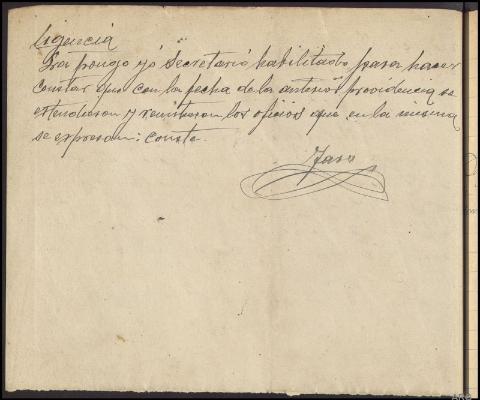 ligencia
La pongo yó Secretario habilitado para hacer
constar que con la fecha de la anterior providencia se
extendieron y remitieron los oficios que en la misma
se expresan: conste.